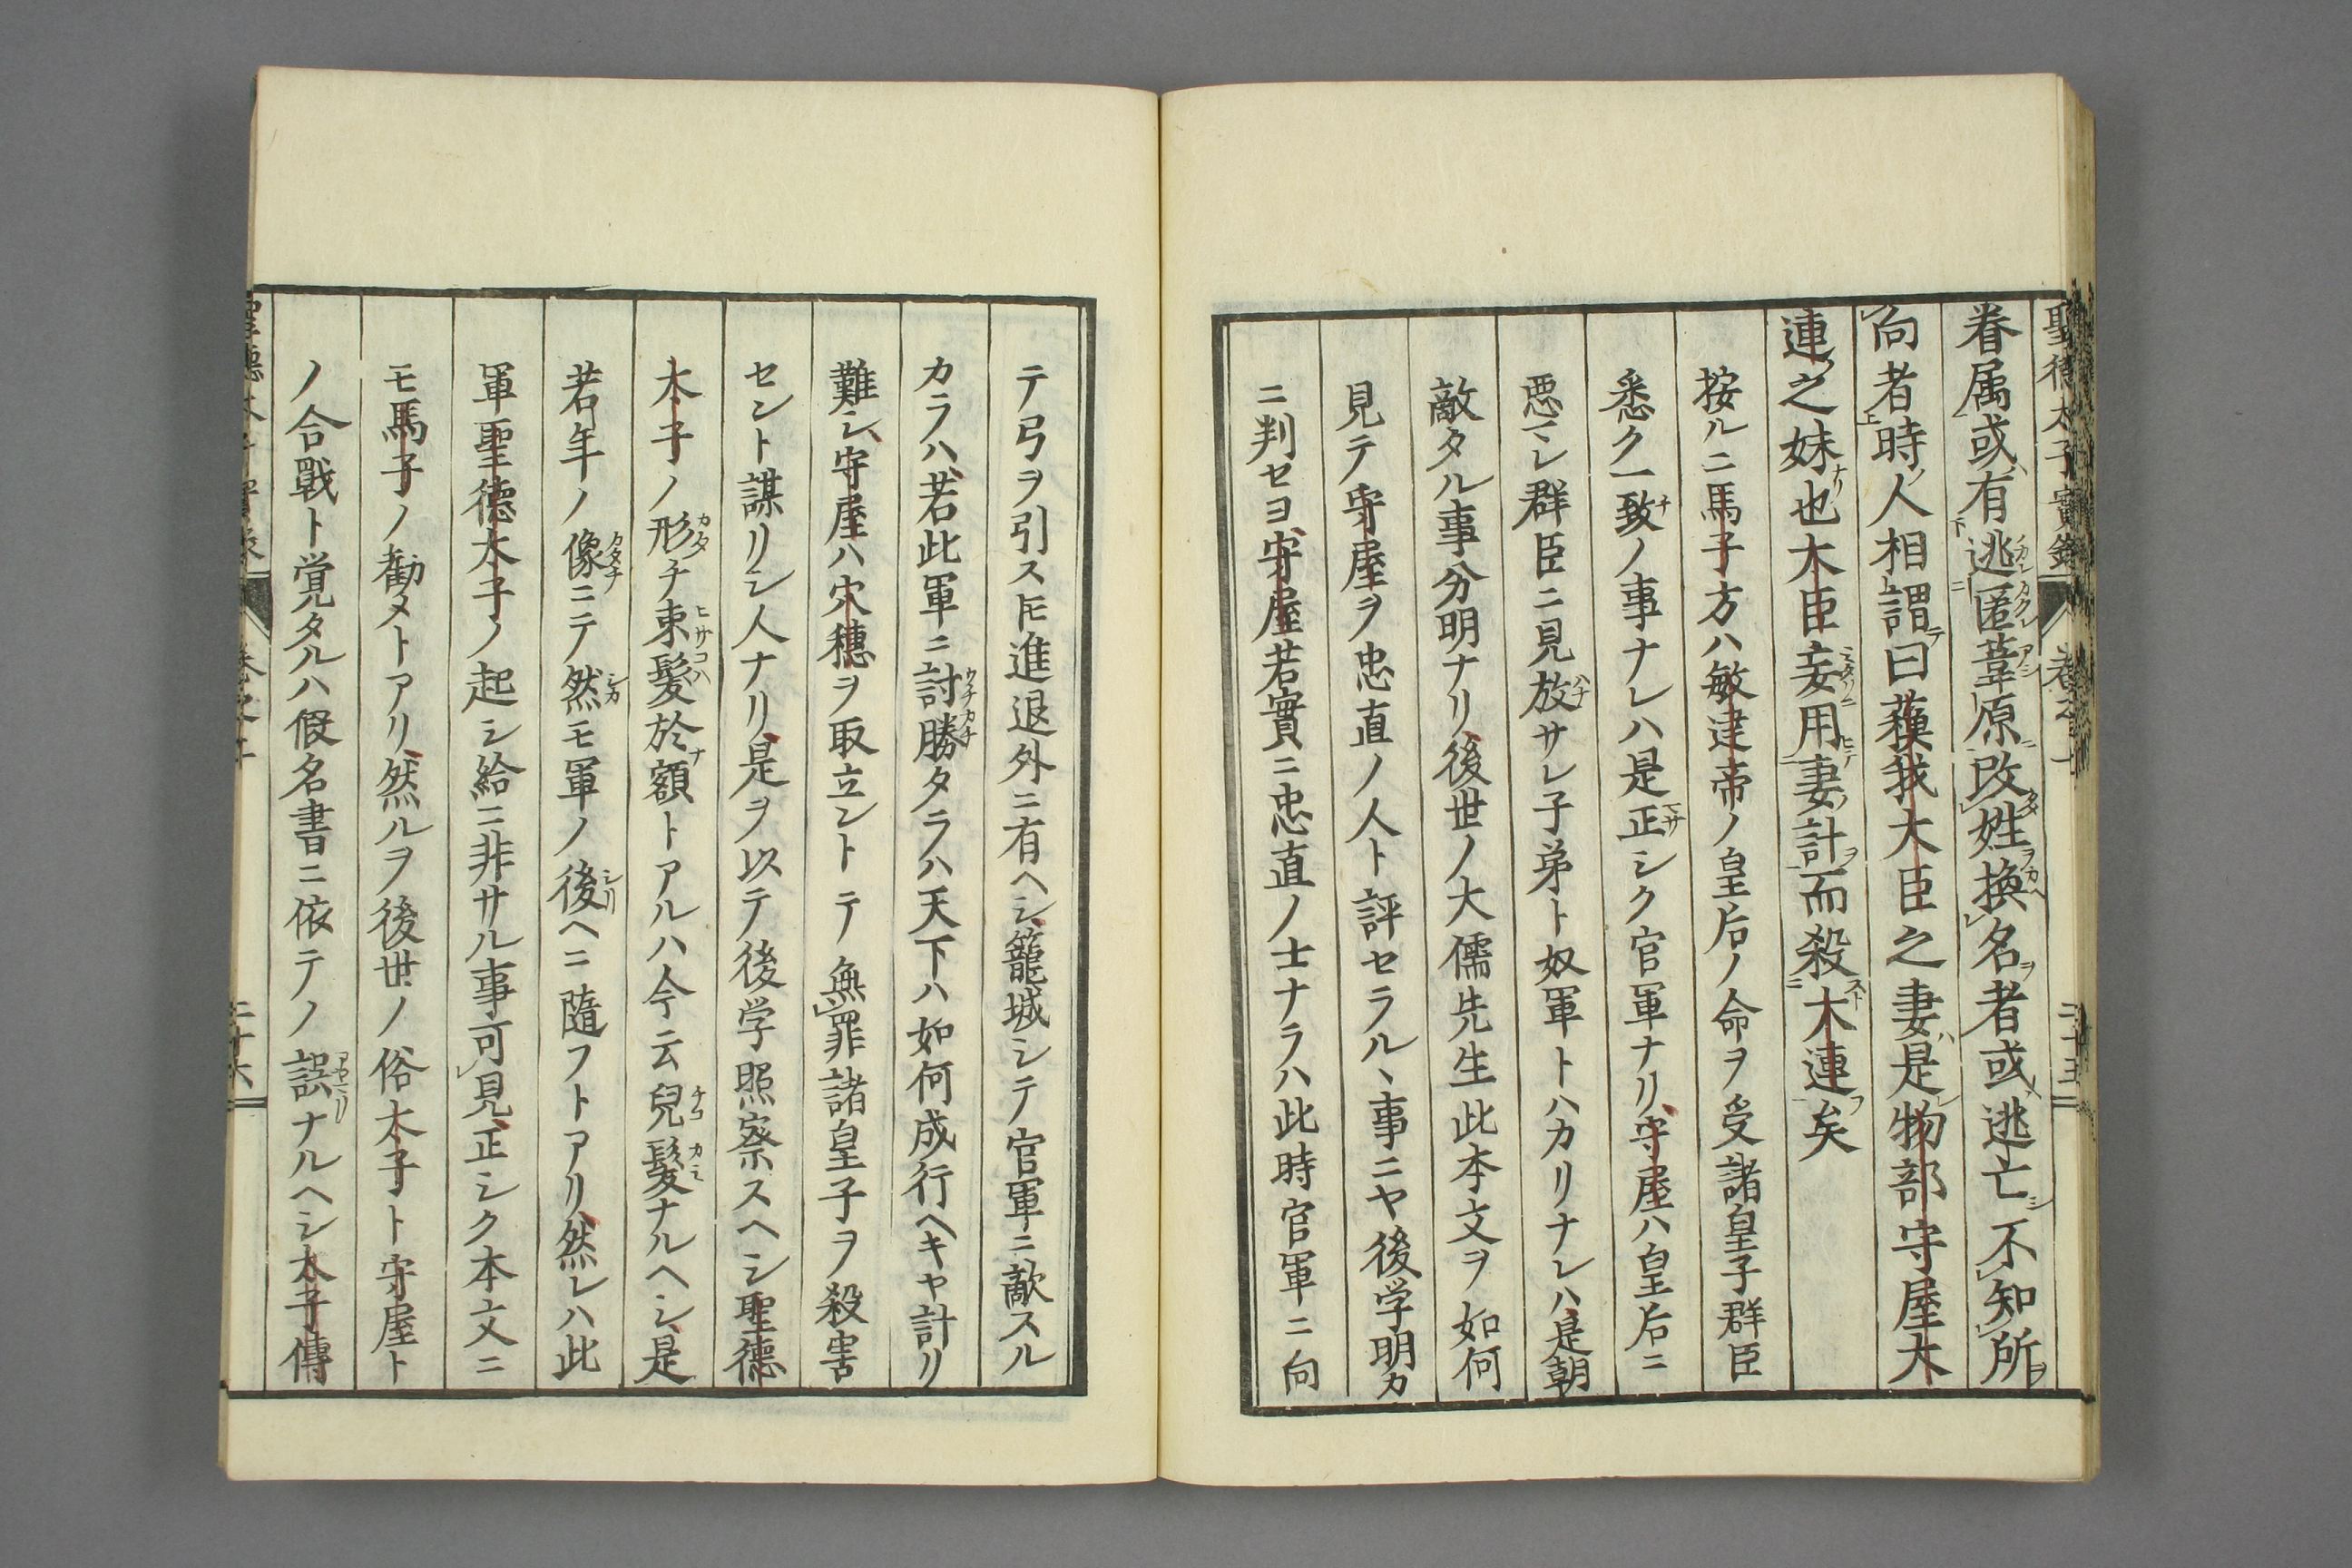 聖徳太子實録 卷之一 二十五
眷属或有逃匿葦原改姓換名者或逃亡不知所
向者時人相謂曰蘓我大臣之妻是物部守屋大
連之妹也大臣妄用妻計而殺大連矣
按ルニ馬子方ハ敏達帝ノ皇后ノ命ヲ受諸皇子群臣
悉ク一致ノ事ナレハ是正シク官軍ナリ守屋ハ皇后ニ
悪マレ群臣ニ見放サレ子弟ト奴軍トハカリナレハ是朝
敵タル事分明ナリ後世ノ大儒先生此本文ヲ如何
見テ守屋ヲ忠直ノ人ト評セラルヽ事ニヤ後学明カ
ニ判セヨ守屋若實ニ忠直ノ士ナラハ此時官軍ニ向
テ弓ヲ引ストモ進退外ニ有ヘシ籠城シテ官軍ニ敵スル
カラハ若此軍ニ討勝タラハ天下ハ如何成行ヘキヤ計リ
難シ守屋ハ穴穂ヲ取立ントテ無罪諸皇子ヲ殺害
セント謀リシ人ナリ是ヲ以テ後学照察スヘシ聖德
太子ノ形チ束髪於額トアルハ今云兒髪ナルヘシ是
若年ノ像ニテ然モ軍ノ後ヘニ隨フトアリ然レハ此
軍聖德太子ノ起シ給ニ非サル事可見正シク本文ニ
モ馬子ノ勧メトアリ然ルヲ後世ノ俗太子ト守屋ト
ノ合戰ト覚タルハ假名書ニ依テノ誤ナルヘシ太子傳
聖德太子實录 卷之一 二十六